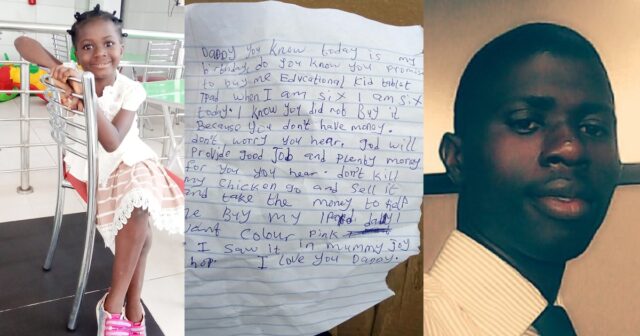 Daddy you know today is my
birthday, do you know you promis
to buy me Educational kid tablet
IPad when I am six I am six
today. I know you did not buy it
Because you don't have money.
don't worry you hear. God will
Provide good Job and plenty money
for you you hear. don't kill
my chicken go and sell it
and take the money to half
me Buy my IPad daddy I
want colour pink
I saw it in mummy Joy
hop. I love you Daddy.